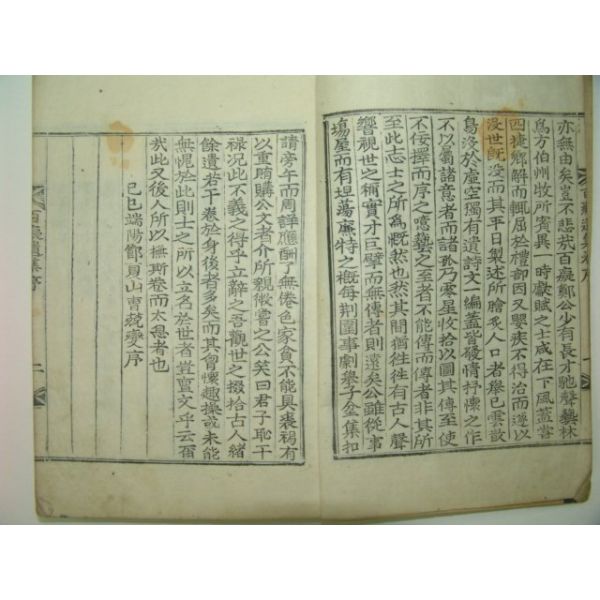 亦無由矣豈不悲哉百癡鄭公少有長才馳聲藝林
爲方伯州牧所賓異一時獻賦之士咸在下風蓋嘗
四捷鄕解而輒屈於禮部因又嬰疾不得治而遂以
沒世旣沒而其平日製述所膾炙人口者擧已雲散
鳥沒於虛空獨有遺詩文一編蓋皆發情抒懷之作
不以屬諸意者而諸孤乃零星收拾以圖其傳至使
不佞擇而序之噫藝之至者不能傳而傳者非其所
至此志士之所爲慨然也然其間猶往往有古人聲
響視世之稱實才巨擘而無傳者則遠矣公雖從事
場屋而有坦蕩廉特之槪每荊圍事劇擧子坌集扣
請旁午而周詳應酬了無倦色家貧不能具裘褐有
以重賄購公文者介所親微嘗之公笑曰君子恥干
祿况此不義之得乎立辭之吾觀世之掇拾古人緖
餘遺若干卷於身後者多矣而其曾懷趣操或未能
無愧於此則士之所以立名於世者豈亶文乎云爾
哉此又後人所以撫斯卷而太息者也
己巳端陽節夏山曺兢燮序
百癡遺集序
二